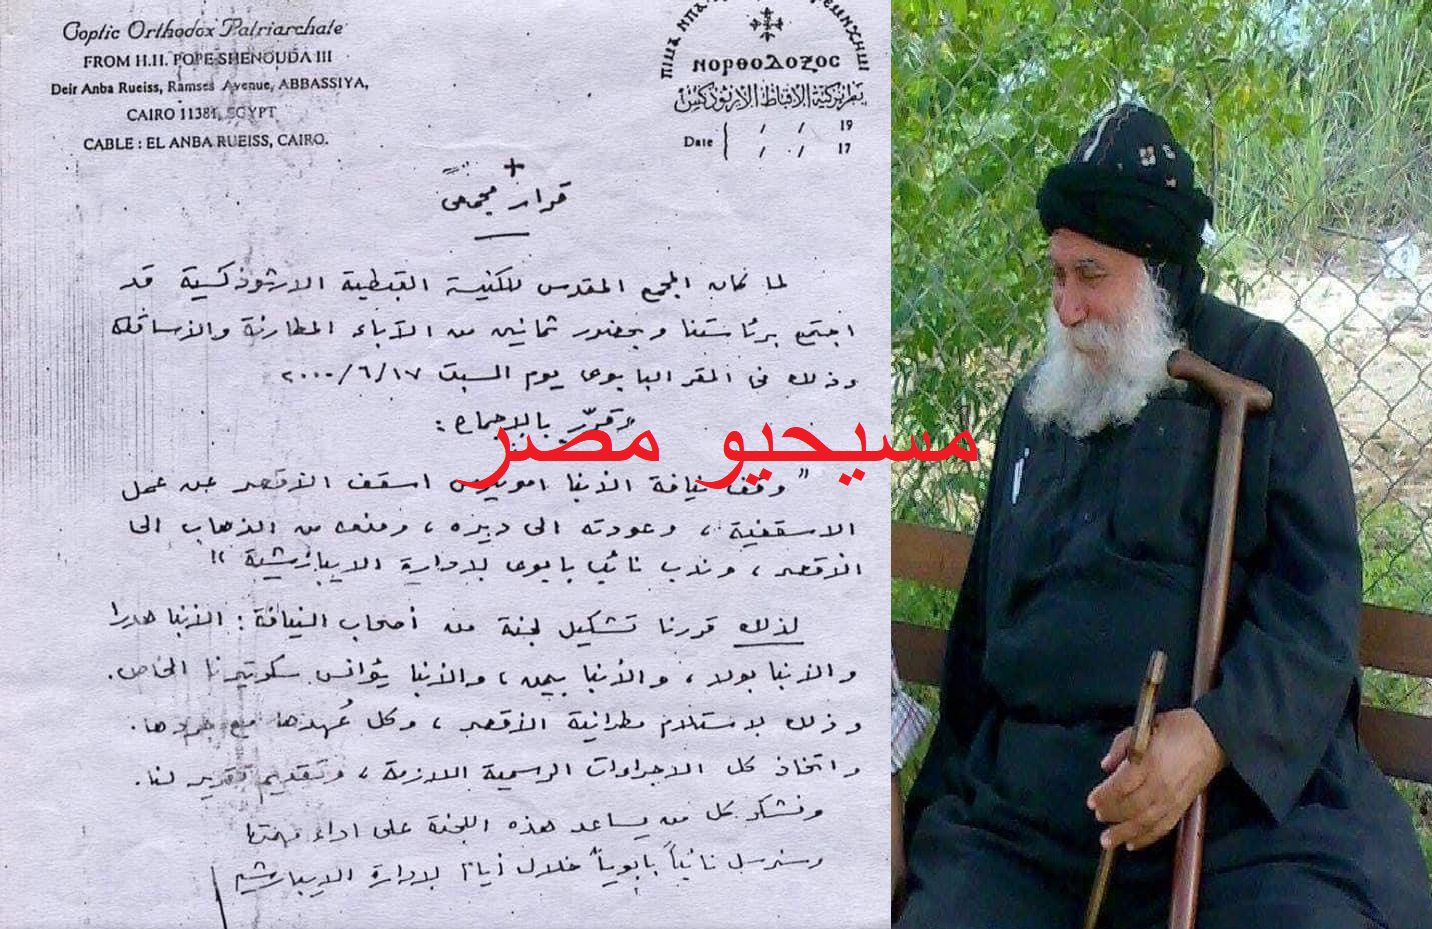 Coptic Orthodox Patriarchate
FROM H.H. POPE SHENOUDA III
Deir Anba Rueiss, Ramses Avenue, ABBASSIYA,
CAIRO 11381, EGYPT
CABLE : EL ANBA RUEISS, CAIRO.
ⲛⲟⲣⲑⲟⲇⲟⲝⲟⲥ
بطريركية الأقباط الأرثوذكس
Date / / 19
/ / 17
قرار مجمعى
لما كان المجمع المقدس للكنيسة القبطية الارثوذكسية قد
اجتمع برئاستنا وبحضور ثمانين من الآباء المطارنة والأساقفة
وذلك فى المقر البابوى يوم السبت ٢٠٠٠/٦/١٧
وقرّر بالإجماع :
مسيحيو مصر
" وقف نيافة الأنبا امونيوس اسقف الأقصر عن عمل
الاسقفية ، وعودته الى ديره ، ومنعه من الذهاب الى
الأقصر ، وندب نائب بابوى لإدارة الايبارشية "
لذلك قررنا تشكيل لجنة من أصحاب النيافة : الأنبا هدرا
والأنبا بولا ، والأنبا بيمن ، والأنبا يؤانس سكرتيرنا الخاص .
وذلك لاستلام مطرانية الأقصر ، وكل عُهدها مع جردها .
واتخاذ كل الاجراءات الرسمية اللازمة ، وتقديم تقرير لنا .
ونشكر كل من يساعد هذه اللجنة على اداء مهمتها
وسنرسل نائباً بابوياً خلال أيام لإدارة الايبارشية